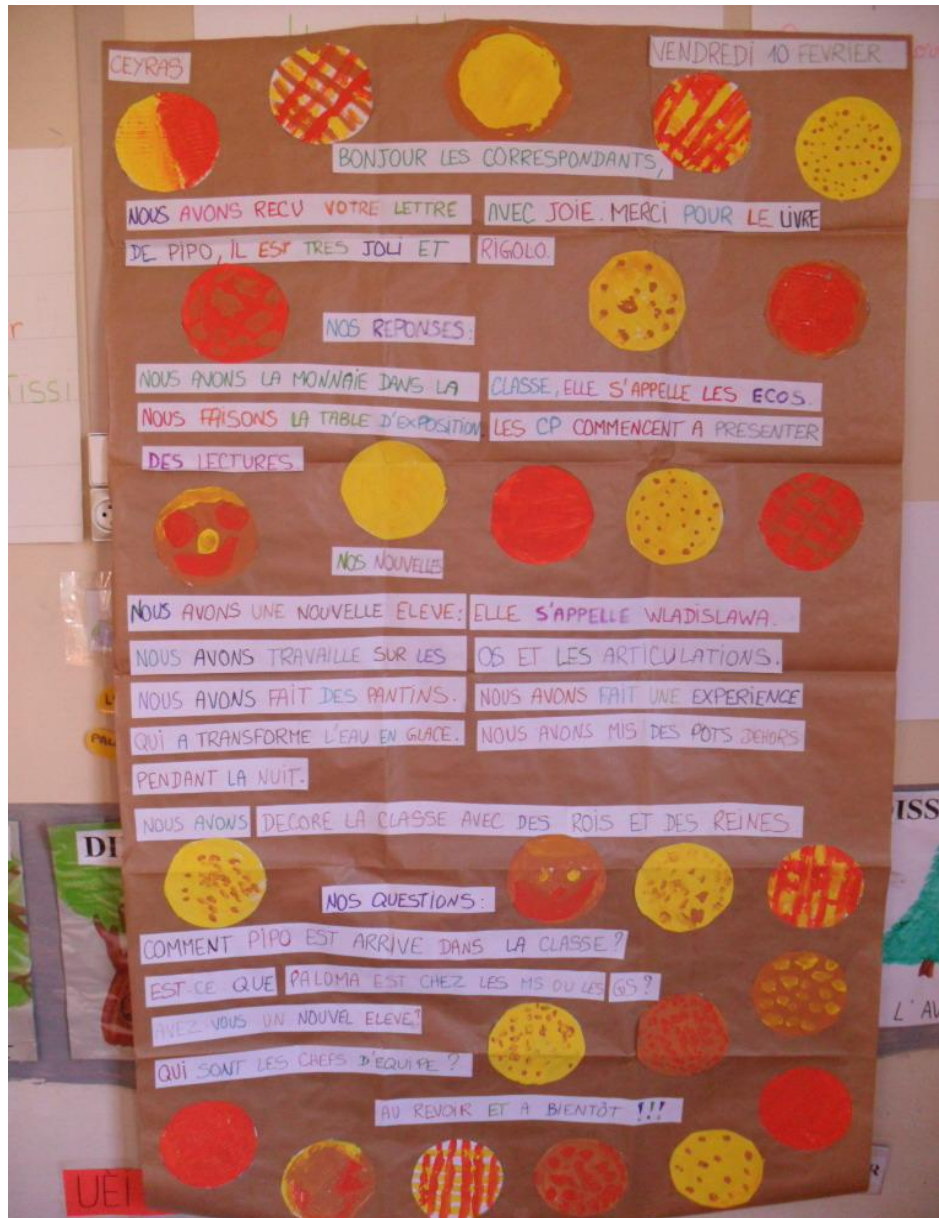 CEYRAS
VENDREDI 10 FEVRIER
BONJOUR LES CORRESPONDANTS,
NOUS AVONS RECU VOTRE LETTRE AVEC JOIE. MERCI POUR LE LIVRE
DE PIPO, IL EST TRES JOLI ET RIGOLO.
NOS REPONSES:
NOUS AVONS LA MONNAIE DANS LA CLASSE, ELLE S'APPELLE LES ECOS.
NOUS FAISONS LA TABLE D'EXPOSITION LES CP COMMENCENT A PRESENTER
DES LECTURES
NOS NOUVELLES
NOUS AVONS UNE NOUVELLE ELEVE: ELLE S'APPELLE WLADISLAWA.
NOUS AVONS TRAVAILLE SUR LES OS ET LES ARTICULATIONS.
NOUS AVONS FAIT DES PANTINS. NOUS AVONS FAIT UNE EXPERIENCE
QUI A TRANSFORME L'EAU EN GLACE. NOUS AVONS MIS DES POTS DEHORS
PENDANT LA NUIT.
NOUS AVONS DECORE LA CLASSE AVEC DES ROIS ET DES REINES
NOS QUESTIONS:
COMMENT PIPO EST ARRIVE DANS LA CLASSE?
EST-CE QUE PALOMA EST CHEZ LES MS OU LES GS?
AVEZ-VOUS UN NOUVEL ELEVE?
QUI SONT LES CHEFS D'EQUIPE?
AU REVOIR ET A BIENTÔT !!!
TISSI
DI
ISS
L'AV
UEI